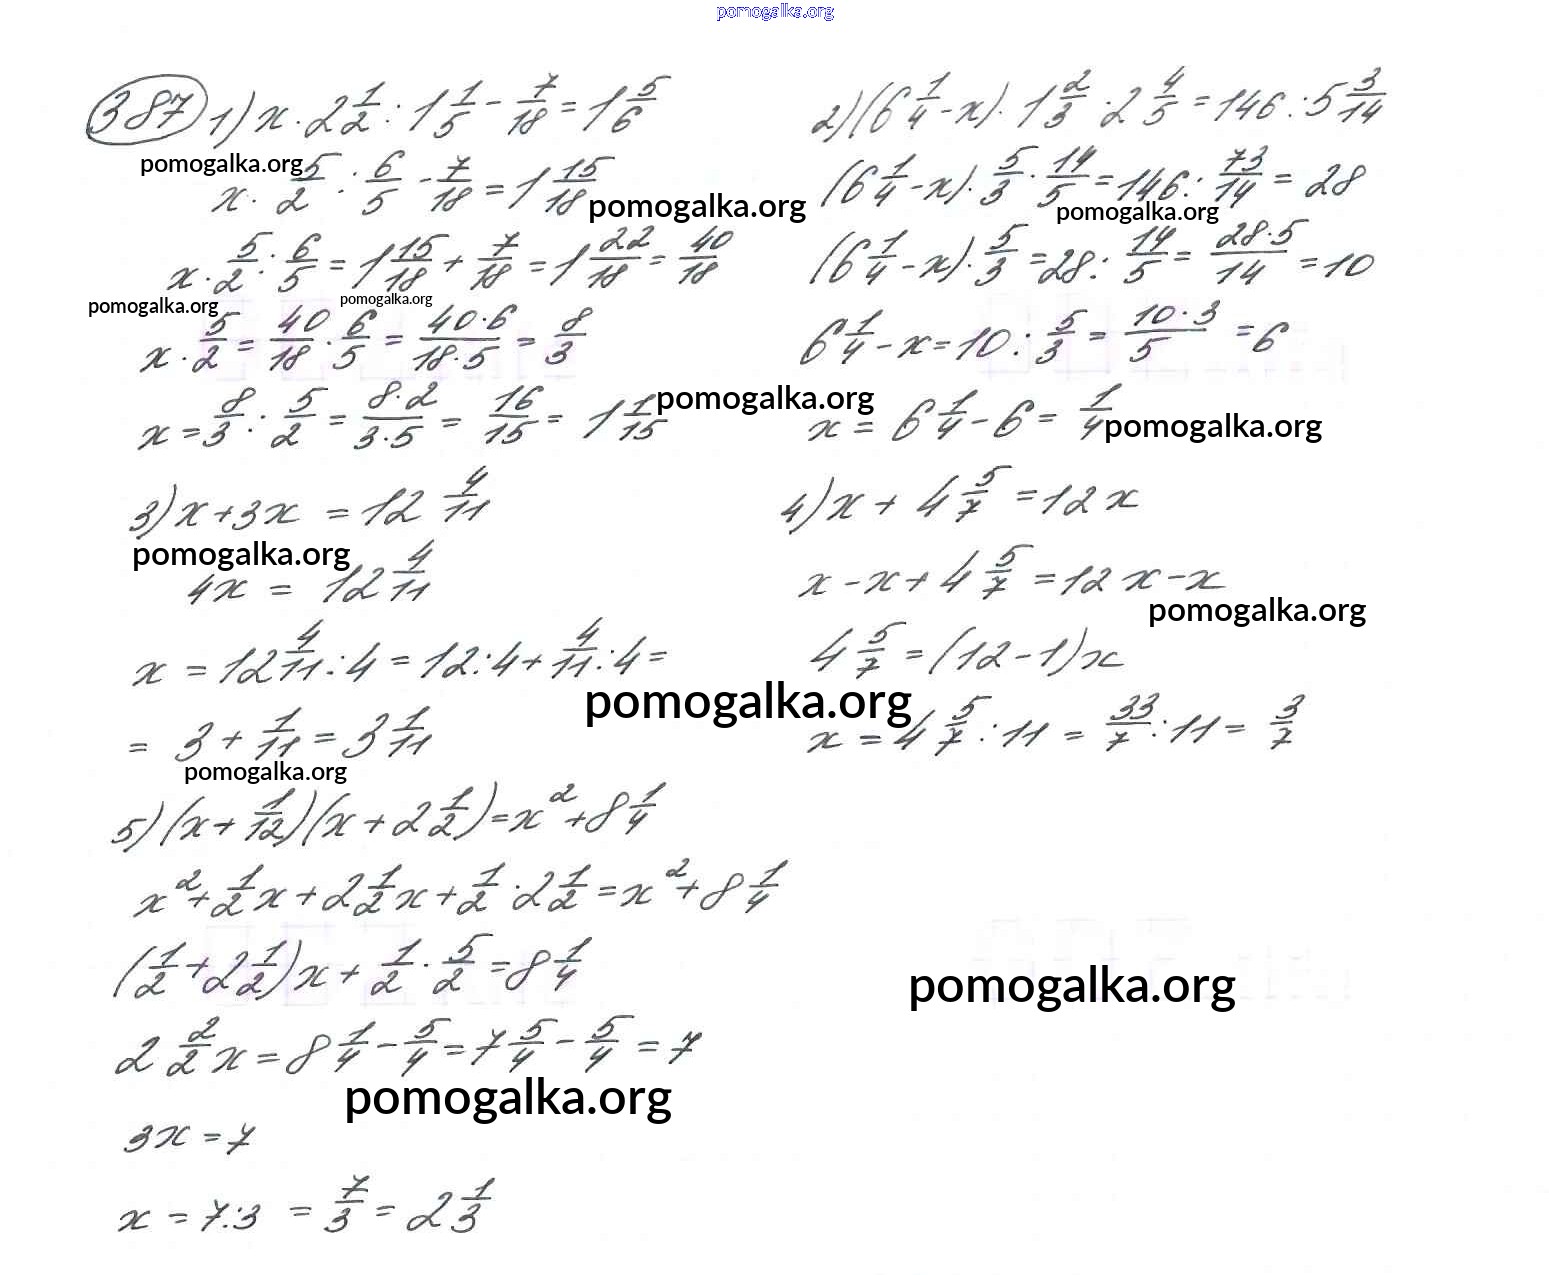 pomogalka.org
387 1) x · 2 1/2 : 1 1/5 - 7/18 = 1 5/6
pomogalka.org
x · 5/2 : 6/5 - 7/18 = 1 15/18
pomogalka.org
x · 5/2 : 6/5 = 1 15/18 + 7/18 = 1 22/18 = 40/18
pomogalka.org
pomogalka.org
x · 5/2 = 40/18 · 6/5 = 40·6/18·5 = 8/3
x = 8/3 : 5/2 = 8·2/3·5 = 16/15 = 1 1/15
pomogalka.org
2) (6 1/4 - x) · 1 2/3 · 2 4/5 = 146 : 5 3/14
(6 1/4 - x) · 5/3 · 14/5 = 146 : 73/14 = 28
pomogalka.org
(6 1/4 - x) · 5/3 = 28 : 14/5 = 28·5/14 = 10
6 1/4 - x = 10 : 5/3 = 10·3/5 = 6
x = 6 1/4 - 6 = 1/4
pomogalka.org
3) x + 3x = 12 4/11
pomogalka.org
4x = 12 4/11
x = 12 4/11 : 4 = 12 : 4 + 4/11 : 4 =
pomogalka.org
= 3 + 1/11 = 3 1/11
pomogalka.org
4) x + 4 5/7 = 12x
x - x + 4 5/7 = 12x - x
pomogalka.org
4 5/7 = (12 - 1)x
x = 4 5/7 : 11 = 33/7 : 11 = 3/7
5) (x + 1/12)(x + 2 1/2) = x² + 8 1/4
x² + 1/2 x + 2 1/2 x + 1/2 · 2 1/2 = x² + 8 1/4
(1/2 + 2 1/2)x + 1/2 · 5/2 = 8 1/4
pomogalka.org
2 2/2 x = 8 1/4 - 5/4 = 7 5/4 - 5/4 = 7
pomogalka.org
3x = 7
x = 7 : 3 = 7/3 = 2 1/3